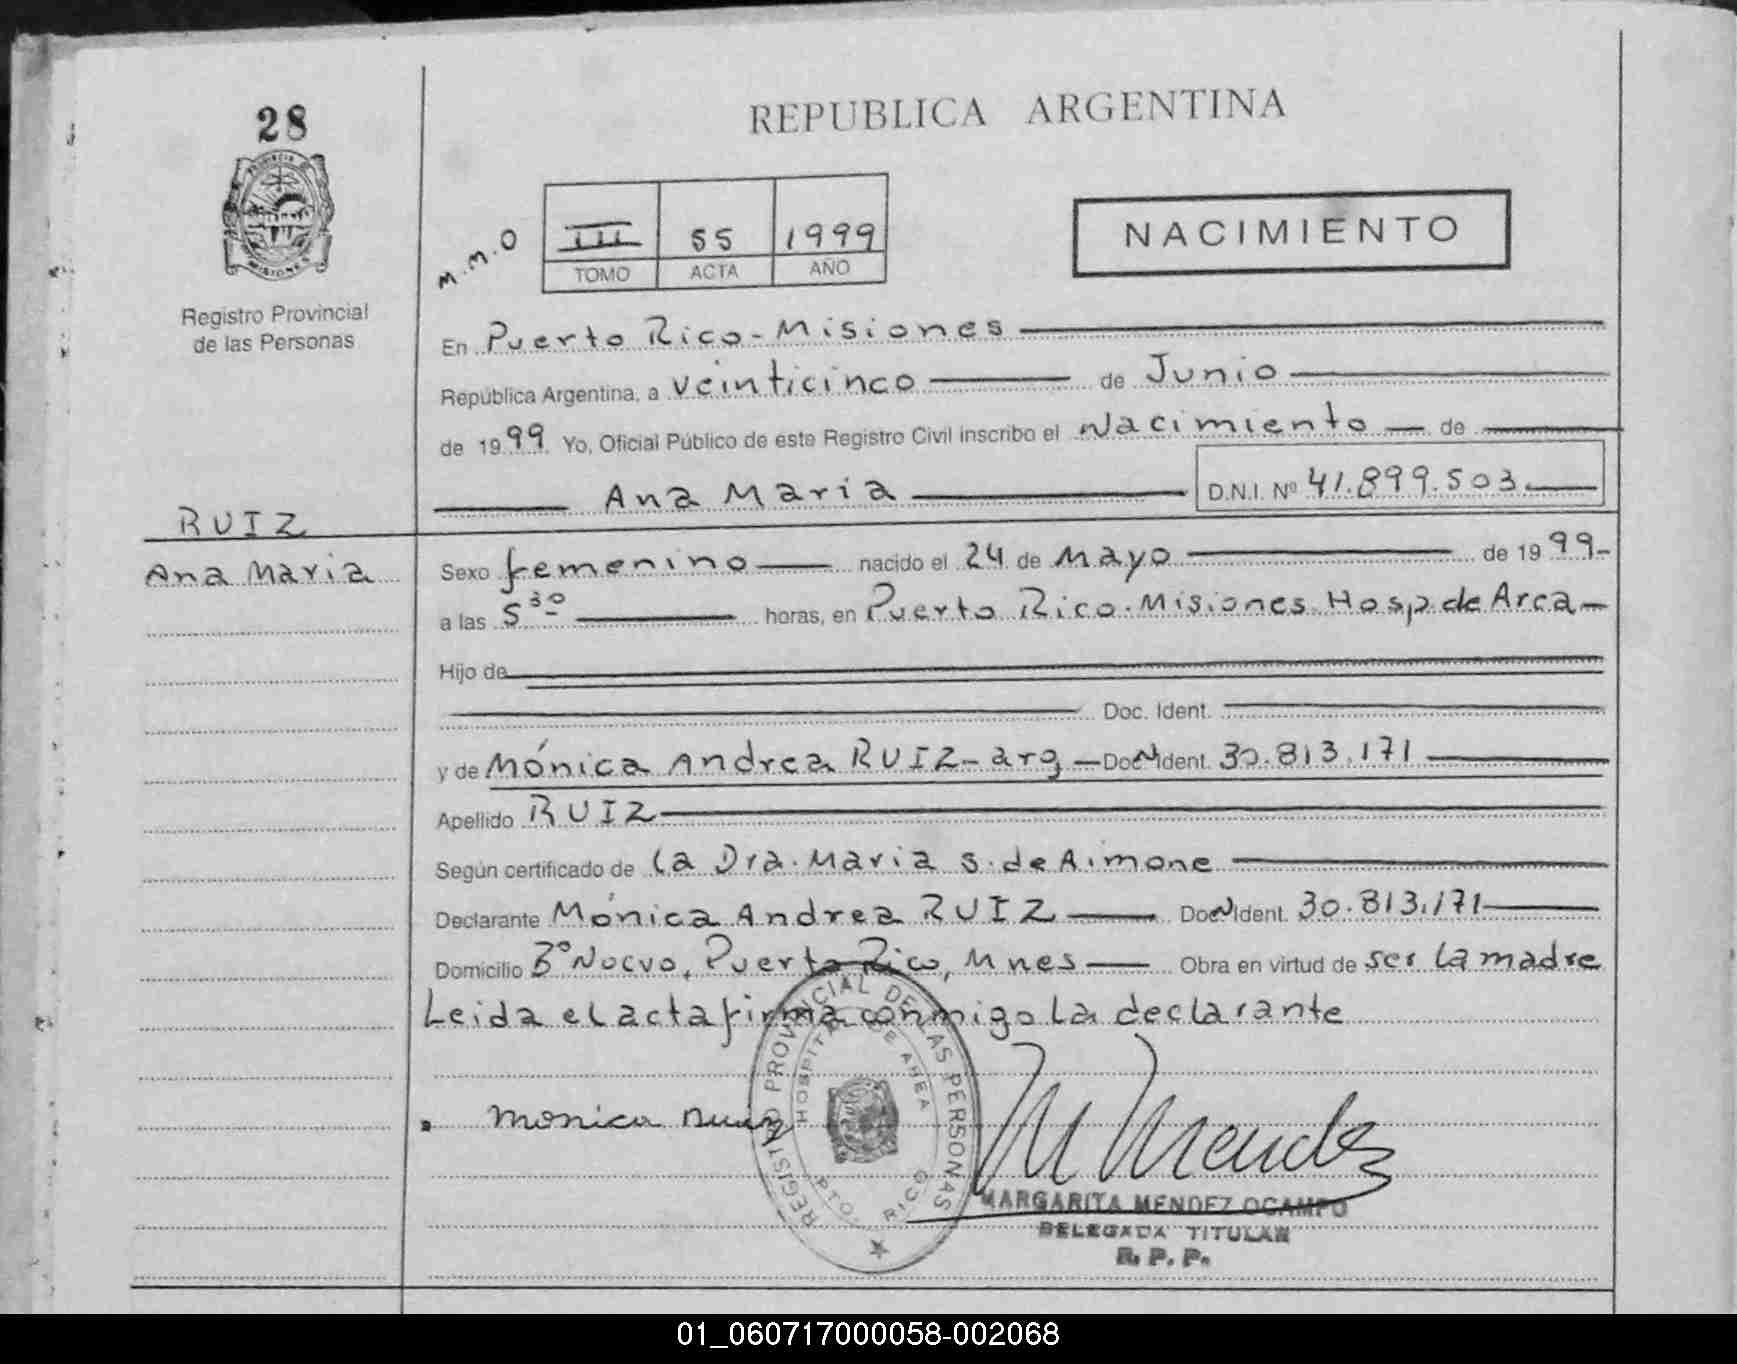 28
PROVINCIA
MISIONES
Registro Provincial
de las Personas
REPUBLICA ARGENTINA
M.M.O
III 55 1999
TOMO ACTA AÑO
NACIMIENTO
En Puerto Rico - Misiones
República Argentina, a veinticinco de Junio
de 1999. Yo, Oficial Público de este Registro Civil inscribo el Nacimiento de
Ana Maria D.N.I. Nº 41.899.503.
RUIZ
Ana Maria
Sexo femenino nacido el 24 de Mayo de 1999-
a las 5³⁰ horas, en Puerto Rico. Misiones. Hosp. de Area
Hijo de
Doc. Ident.
y de Mónica Andrea RUIZ - arg - Doc Ident. 30.813.171
Apellido RUIZ
Según certificado de la Dra. Maria S. de Aimone
Declarante Mónica Andrea RUIZ Doc Ident. 30.813.171
Domicilio Bº Nuevo, Puerto Rico, Mnes Obra en virtud de ser la madre
Leida el acta firma conmigo la declarante
Monica Ruiz
REGISTRO PROVINCIAL DE LAS PERSONAS
HOSPITAL DE AREA
PTO. RICO
M Mendez
MARGARITA MENDEZ OCAMPO
DELEGADA TITULAR
R. P. P.
01_060717000058-002068